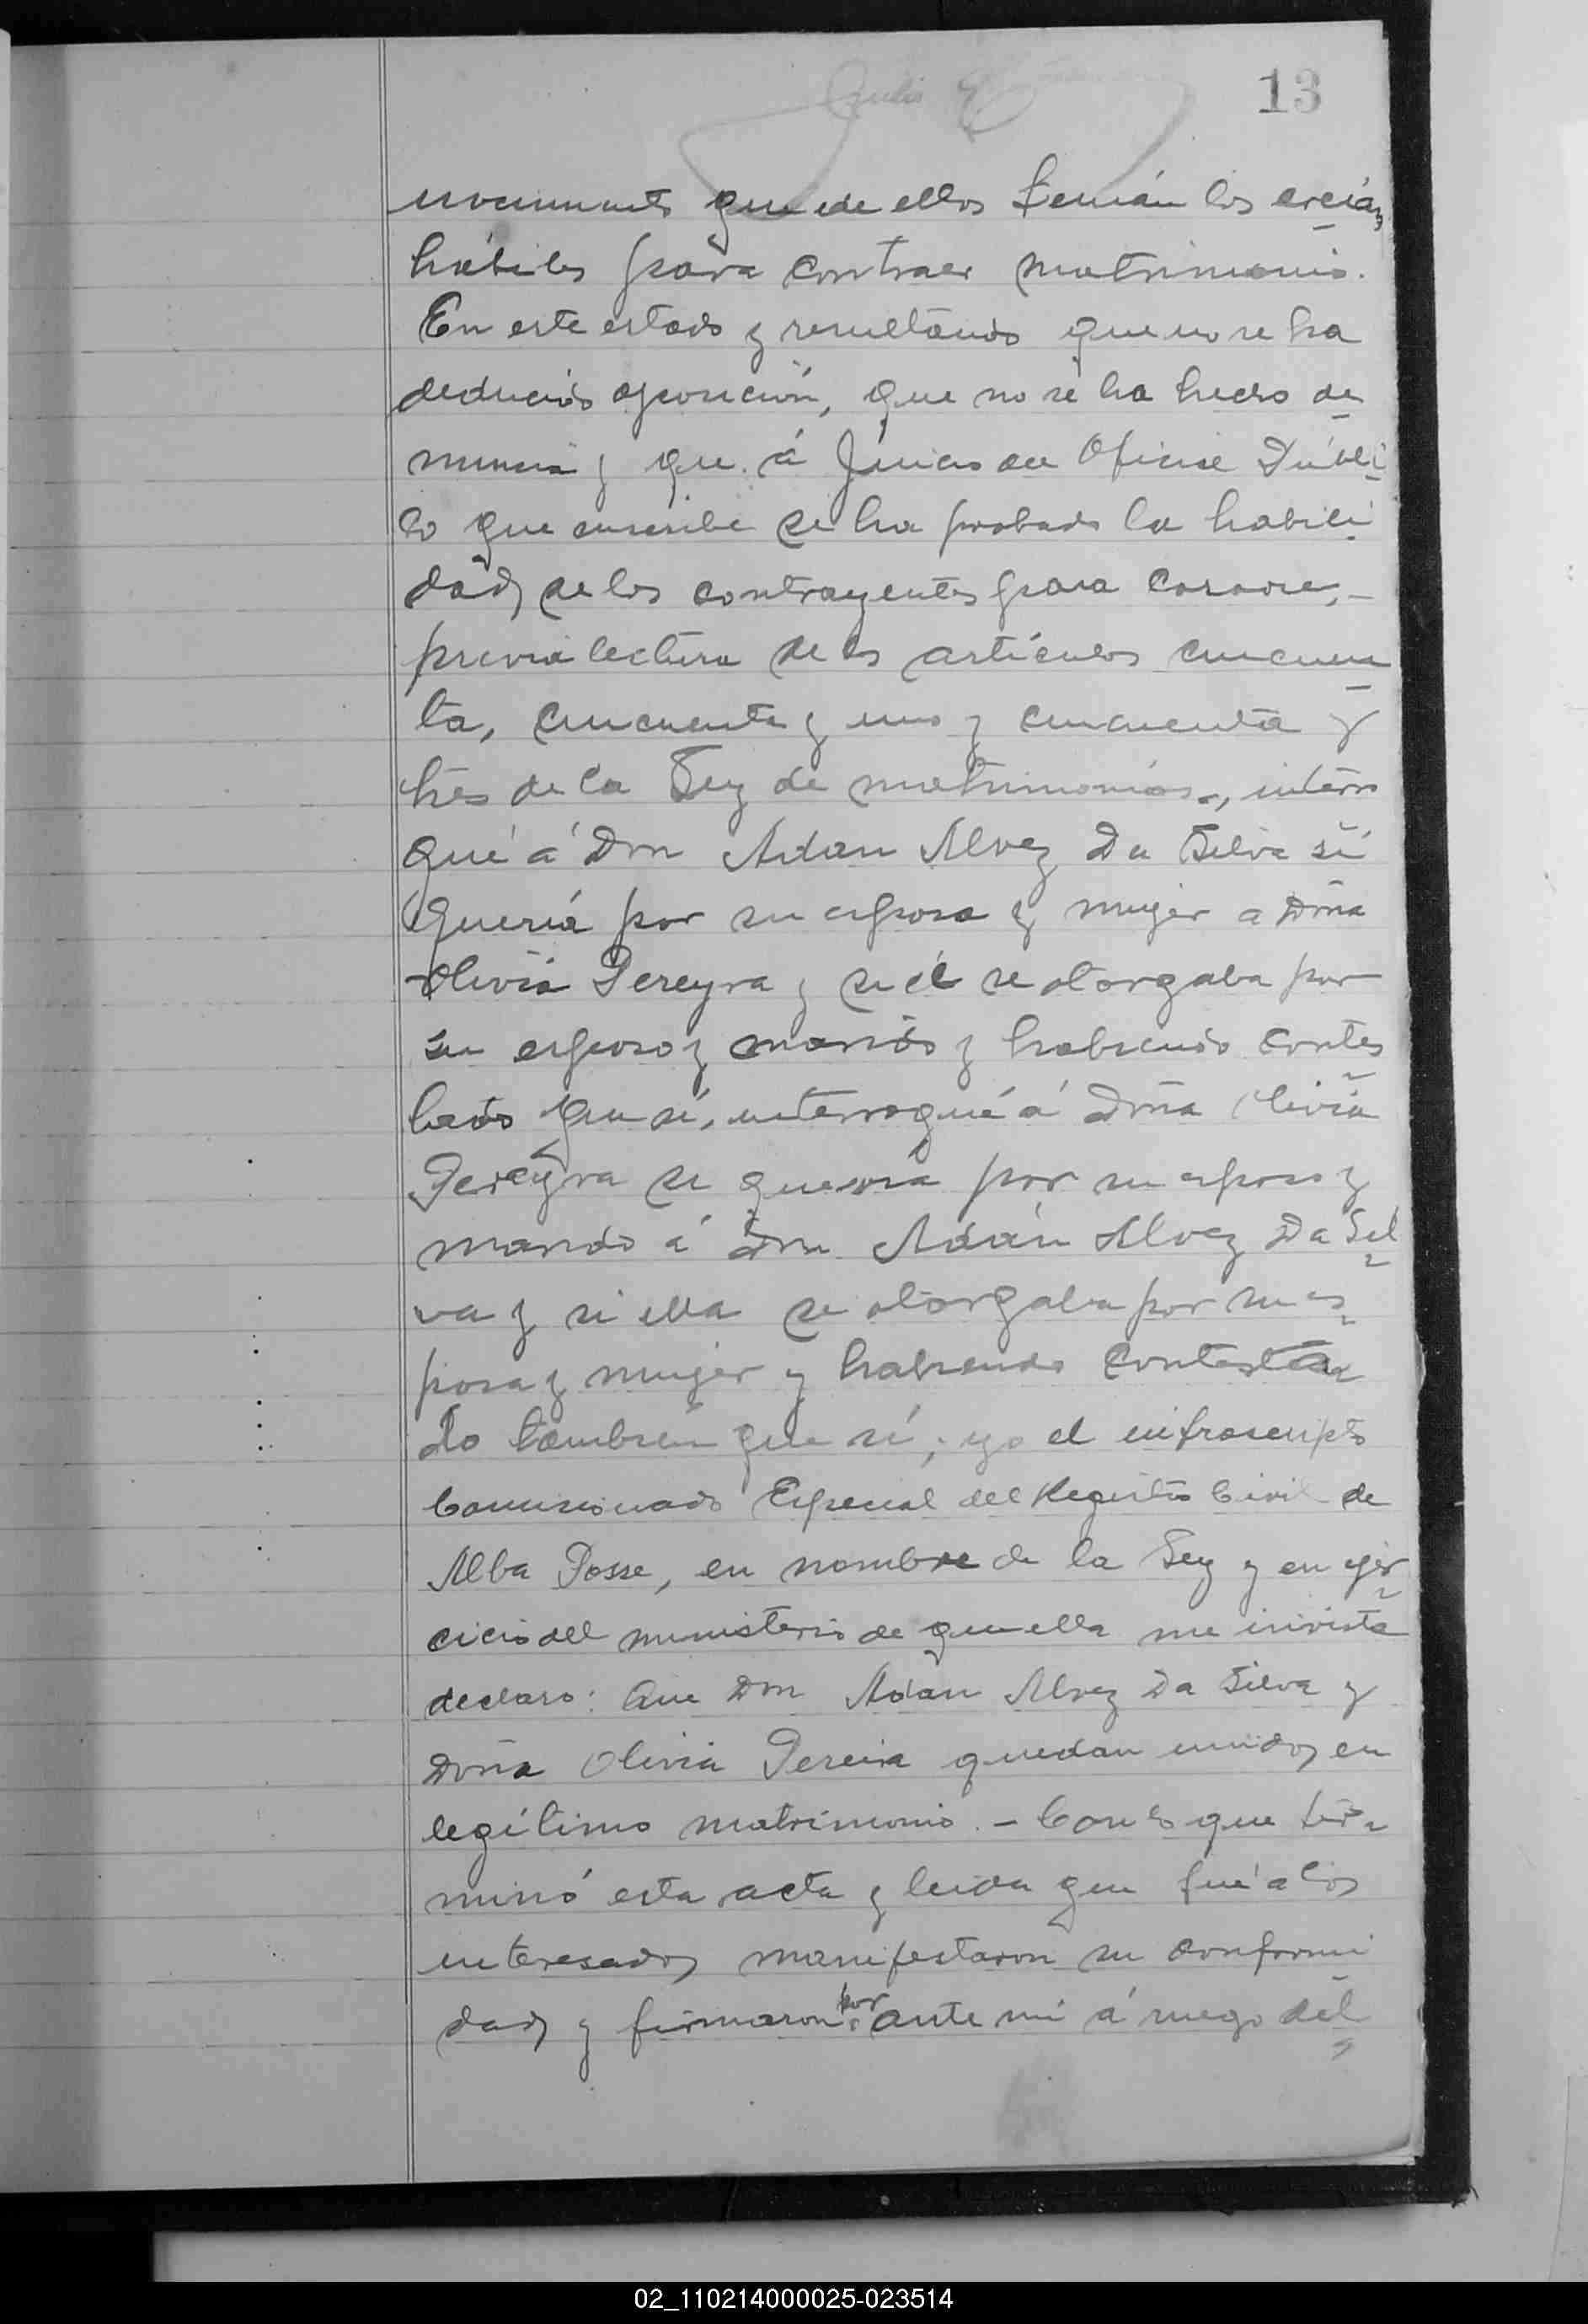 13
nocimiento que de ellos tenián los creián
hábiles para contraer matrimonio.
En este estado y resultando que no se ha
deducido oposición, que no se ha hecho de
nuncia y que á juicio del Oficial Públi
co que suscribe se ha probado la habili
dad de los contrayentes para casarse, -
previa lectura de los artículos cincuen
ta, cincuenta y uno y cincuenta y
tres de la Ley de matrimonios, interro
gué á Don Adan Alvez Da Silva si
quería por su esposa y mujer a Doña
Olivia Pereyra y si él se otorgaba por
su esposo y marido y habiendo contes
tado que sí, interrogué á Doña Olivia
Pereyra si quería por su esposo y
marido á Don Adán Alvez Da Sil
va y si ella se otorgaba por su es
posa y mujer y habiendo contesta
do tambien que sí, yo el infrascripto
Comisionado Especial del Registro Civil de
Alba Posse, en nombre de la Ley y en ejer
cicio del ministerio de que ella me invista
declaro: Que Don Adan Alvez Da Silva y
Doña Olivia Pereira quedan unidos en
legítimo matrimonio. - Con lo que ter
minó esta acta y leida que fué a los
interesados manifestaron su conformi
dad y firmaron por ante mi á ruego del
02_110214000025-023514